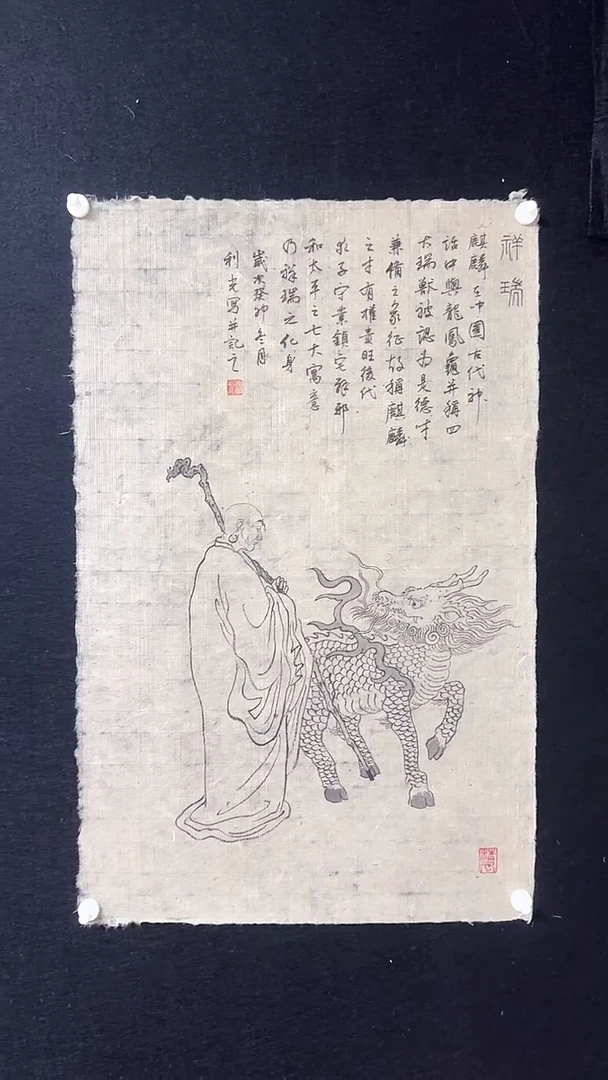 祥瑞
麒麟在中國古代神
話中與龍鳳龜并稱四
大瑞獸被認为是德才
兼備之象征故稱麒麟
之才有權貴旺後代
求子守業鎮宅辟邪
和太平之七大寓意
乃祥瑞之化身
歲次癸卯冬月
利光寫并記之